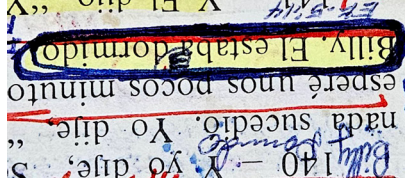 Billy
140 – Y yo dije, S
nada sucedió. Yo dije, “
esperé unos pocos minuto
Billy. El estaba dormido
Y El dijo “Y